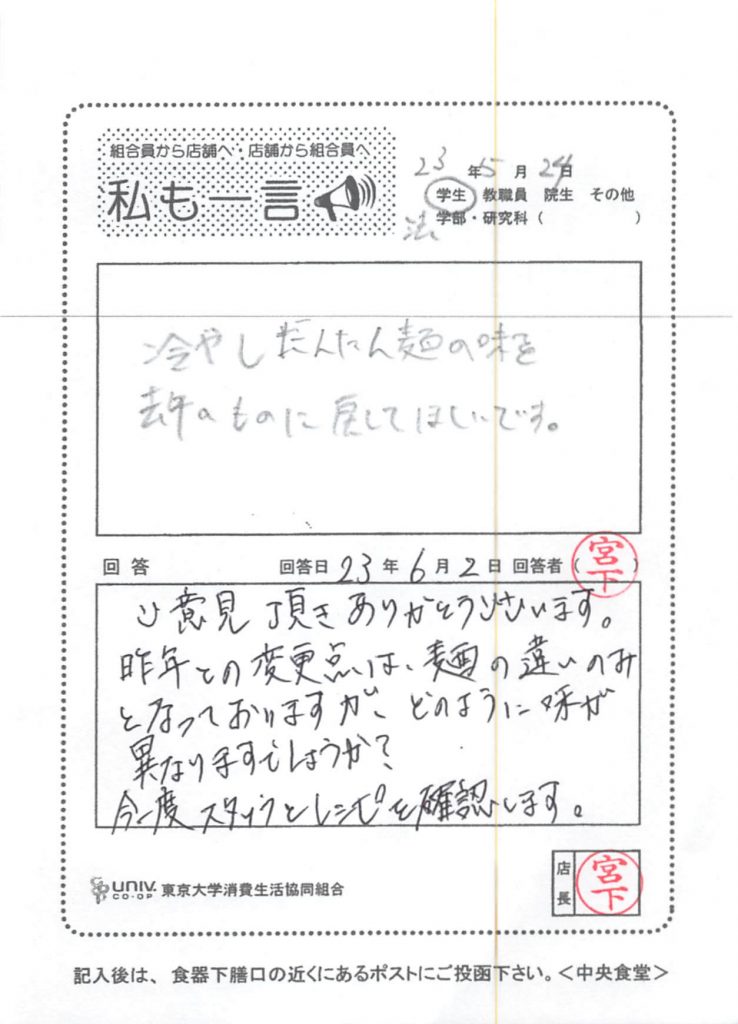 組合員から店舗へ・店舗から組合員へ
私も一言
23年5月24日
学生 教職員 院生 その他
法 学部・研究科（ ）
冷やしだんたん麺の味を
去年のものに戻してほしいです。
回答 回答日 23年6月2日 回答者（宮下）
ご意見頂きありがとうございます。
昨年との変更点は、麺の違いのみ
となっておりますが、どのように味が
異なりますでしょうか？
今一度スタッフとレシピを確認します。
店長 宮下
UNIV. CO-OP 東京大学消費生活協同組合
記入後は、食器下膳口の近くにあるポストにご投函下さい。＜中央食堂＞